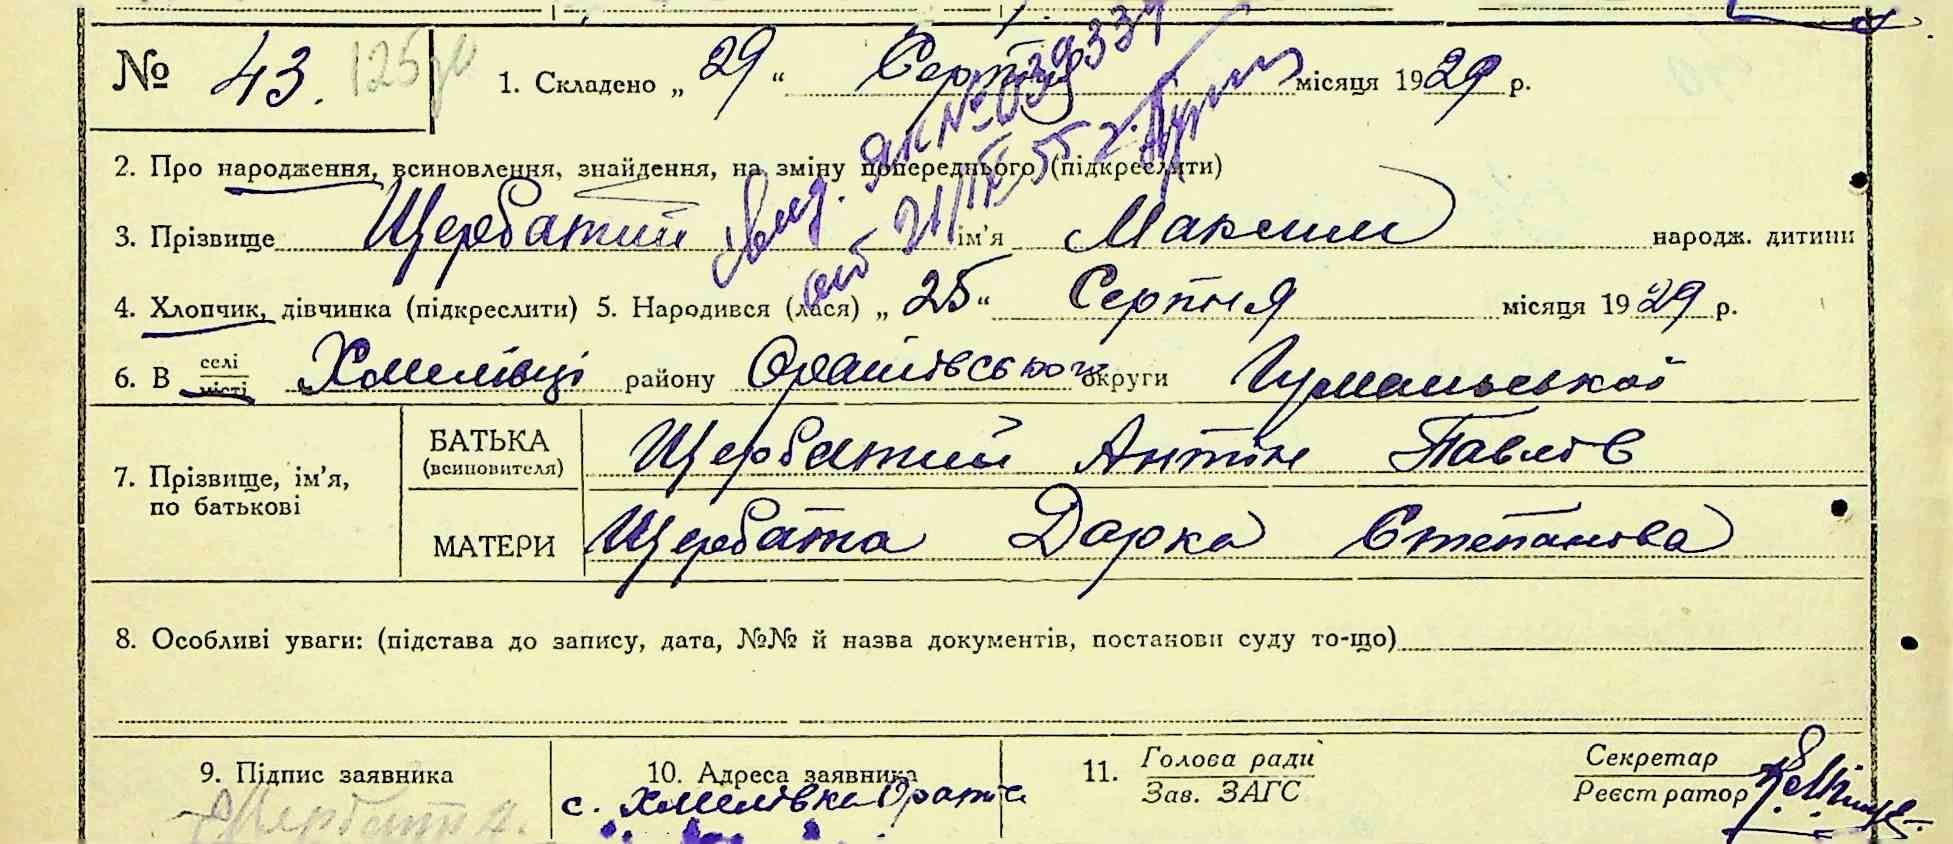 № 43. 125
1. Складено „ 29 “ Серпня місяця 1929 р.
2. Про народження, всиновлення, знайдення, на зміну попереднього (підкреслити)
3. Прізвище Щербатий ім'я Максим народж. дитини
4. Хлопчик, дівчинка (підкреслити) 5. Народився (лася) „ 25 “ Серпня місяця 1929 р.
6. В селі Хмелівці району Оратівського округи Гуманьської
місті
7. Прізвище, ім'я, по батькові
БАТЬКА (всиновителя) Щербатий Антін Павлів
МАТЕРИ Щербата Дарка Степанова
8. Особливі уваги: (підстава до запису, дата, №№ й назва документів, постанови суду то-що)
9. Підпис заявника
Щербатий
10. Адреса заявника
с. Хмелівка
11. Голова ради
Зав. ЗАГС
Секретар
Реєстратор
свид. ЯП № 039337
от 21/IX-55 г.